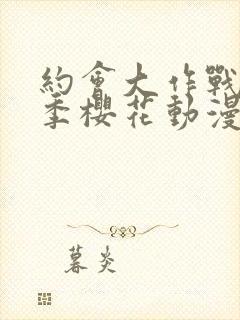 約會大作戰
季櫻花動漫
暮炎